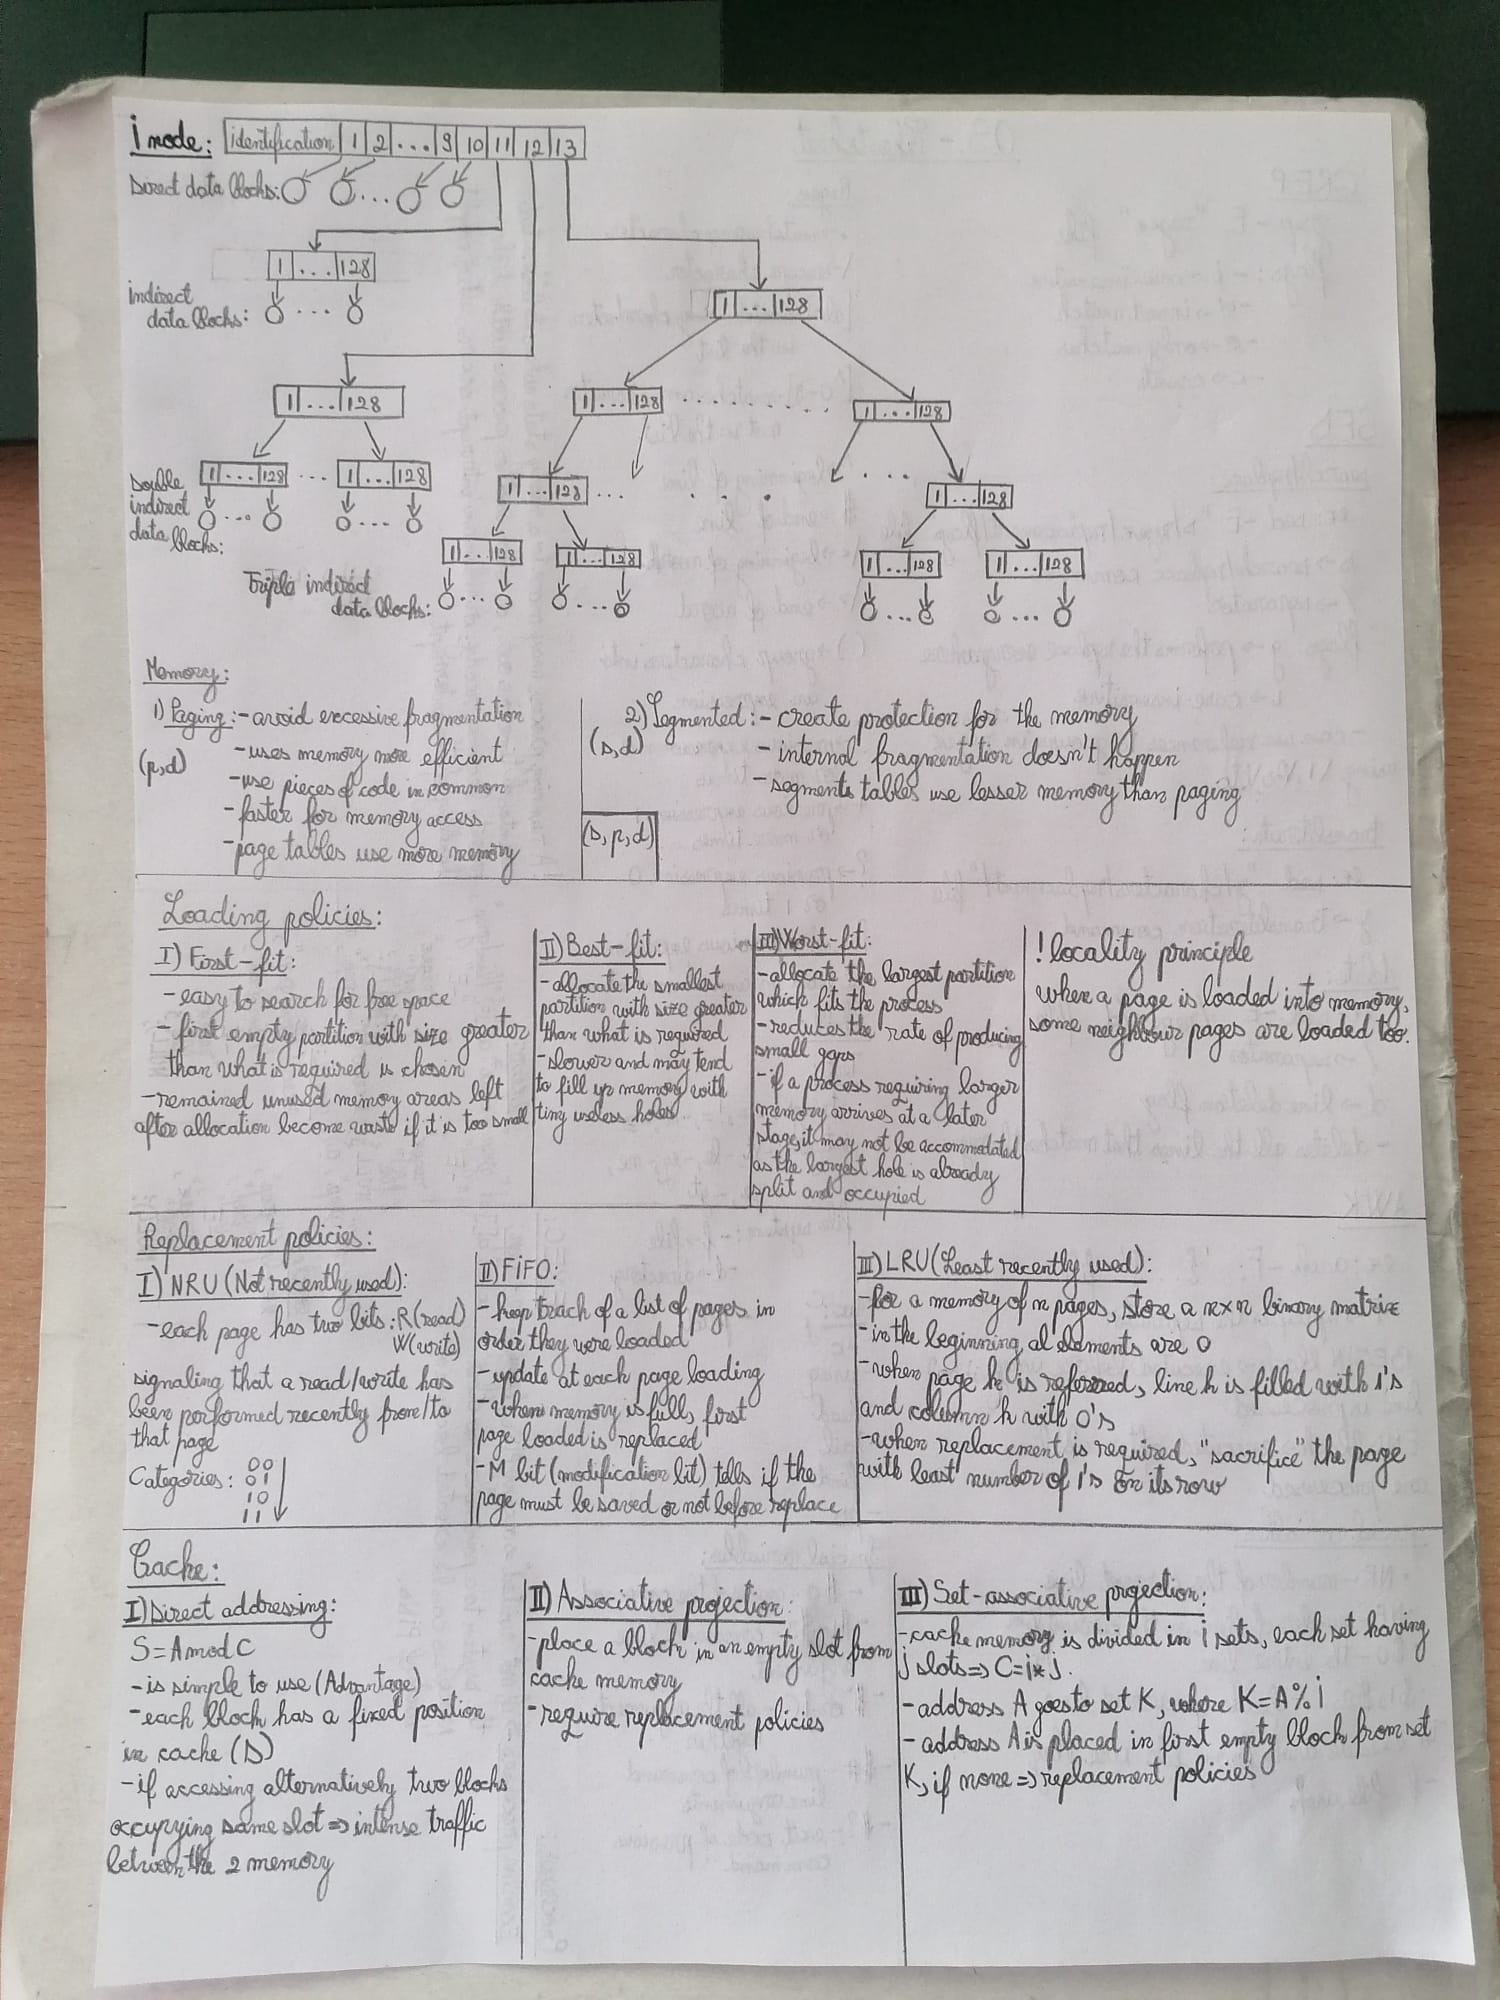 inode: identification 1 2 ... 9 10 11 12 13
Direct data blocks: ...
1 ... 128
indirect
data blocks: ...
1 ... 128
1 ... 128
1 ... 128 ......... 1 ... 128
1 ... 128 ... 1 ... 128
Double
indirect
data blocks:
... ...
1 ... 128 ... ... 1 ... 128
1 ... 128 1 ... 128 1 ... 128 1 ... 128
Triple indirect
data blocks: ... ... ... ...
Memory:
1) Paging: - avoid excessive fragmentation
(p,d)
- uses memory more efficient
- use pieces of code in common
- faster for memory access
- page tables use more memory
2) Segmented: - create protection for the memory
(s,d)
- internal fragmentation doesn't happen
- segments tables use lesser memory than paging
(s,p,d)
Loading policies:
I) First-fit:
- easy to search for free space
- first empty partition with size greater
than what is required is chosen
- remained unused memory areas left
after allocation become waste if it is too small
II) Best-fit:
- allocate the smallest
partition with size greater
than what is required
- slower and may tend
to fill up memory with
tiny useless holes.
III) Worst-fit:
- allocate the largest partition
which fits the process
- reduces the rate of producing
small gaps
- if a process requiring larger
memory arrives at a later
stage, it may not be accommodated
as the largest hole is already
split and occupied
! locality principle
when a page is loaded into memory,
some neighbour pages are loaded too.
Replacement policies:
I) NRU (Not recently used):
- each page has two bits: R (read)
W (write)
signaling that a read/write has
been performed recently from/to
that page
Categories: 00
01
10
11
II) FiFO:
- keep track of a list of pages in
order they were loaded
- update at each page loading
- when memory is full, first
page loaded is replaced
- M bit (modification bit) tells if the
page must be saved or not before replace
III) LRU (Least recently used):
- for a memory of n pages, store a n×n binary matrix
- in the beginning al elements are 0
- when page k is refered, line k is filled with 1's
and column k with 0's
- when replacement is required, "sacrifice" the page
with least number of 1's on its row
Cache:
I) Direct addressing:
S=A mod C
- is simple to use (Advantage)
- each block has a fixed position
in cache (S)
- if accessing alternatively two blocks
occupying same slot => intense traffic
between the 2 memory
II) Associative projection:
- place a block in an empty slot from
cache memory
- require replacement policies
III) Set-associative projection:
- cache memory is divided in i sets, each set having
j slots => C=i*j.
- address A goes to set K, where K=A%i
- address A is placed in first empty block from set
K, if none => replacement policies